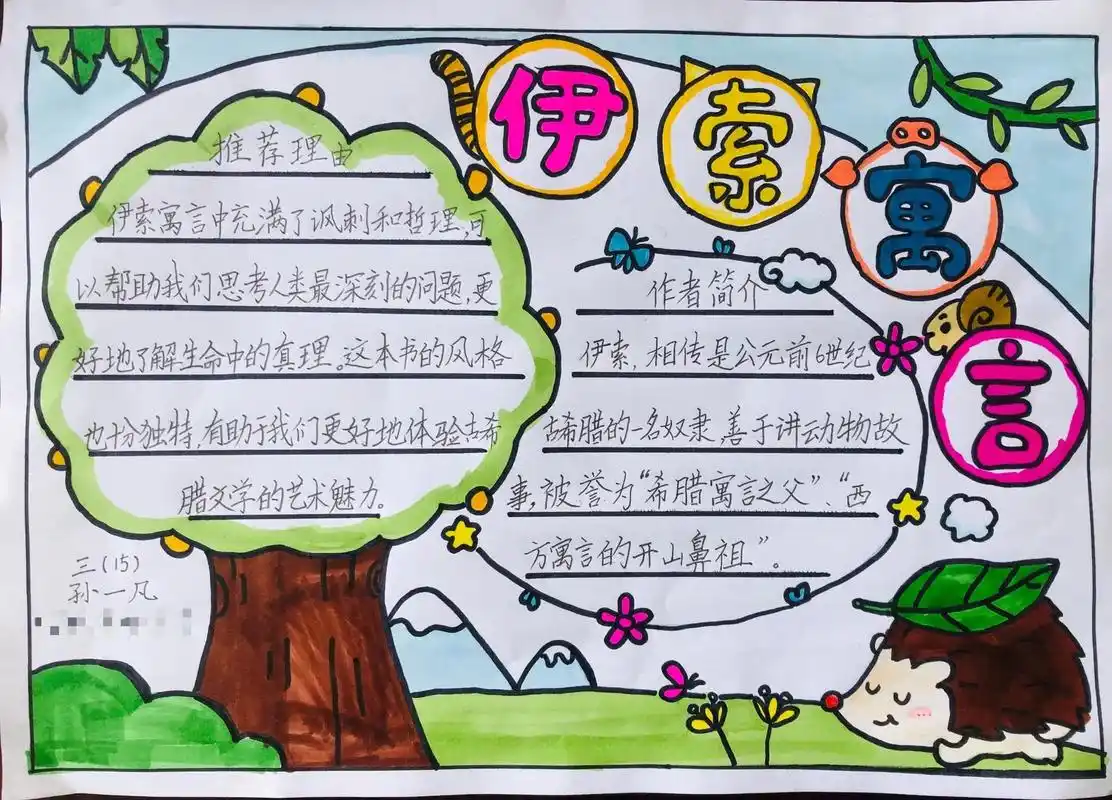 伊索寓言
推荐理由
伊索寓言中充满了讽刺和哲理,可
以帮助我们思考人类最深刻的问题,更
好地了解生命中的真理。这本书的风格
也十分独特,有助于我们更好地体验古希
腊文学的艺术魅力。
作者简介
伊索,相传是公元前6世纪
古希腊的一名奴隶,善于讲动物故
事,被誉为“希腊寓言之父”、“西
方寓言的开山鼻祖”。
三(15)
孙一凡